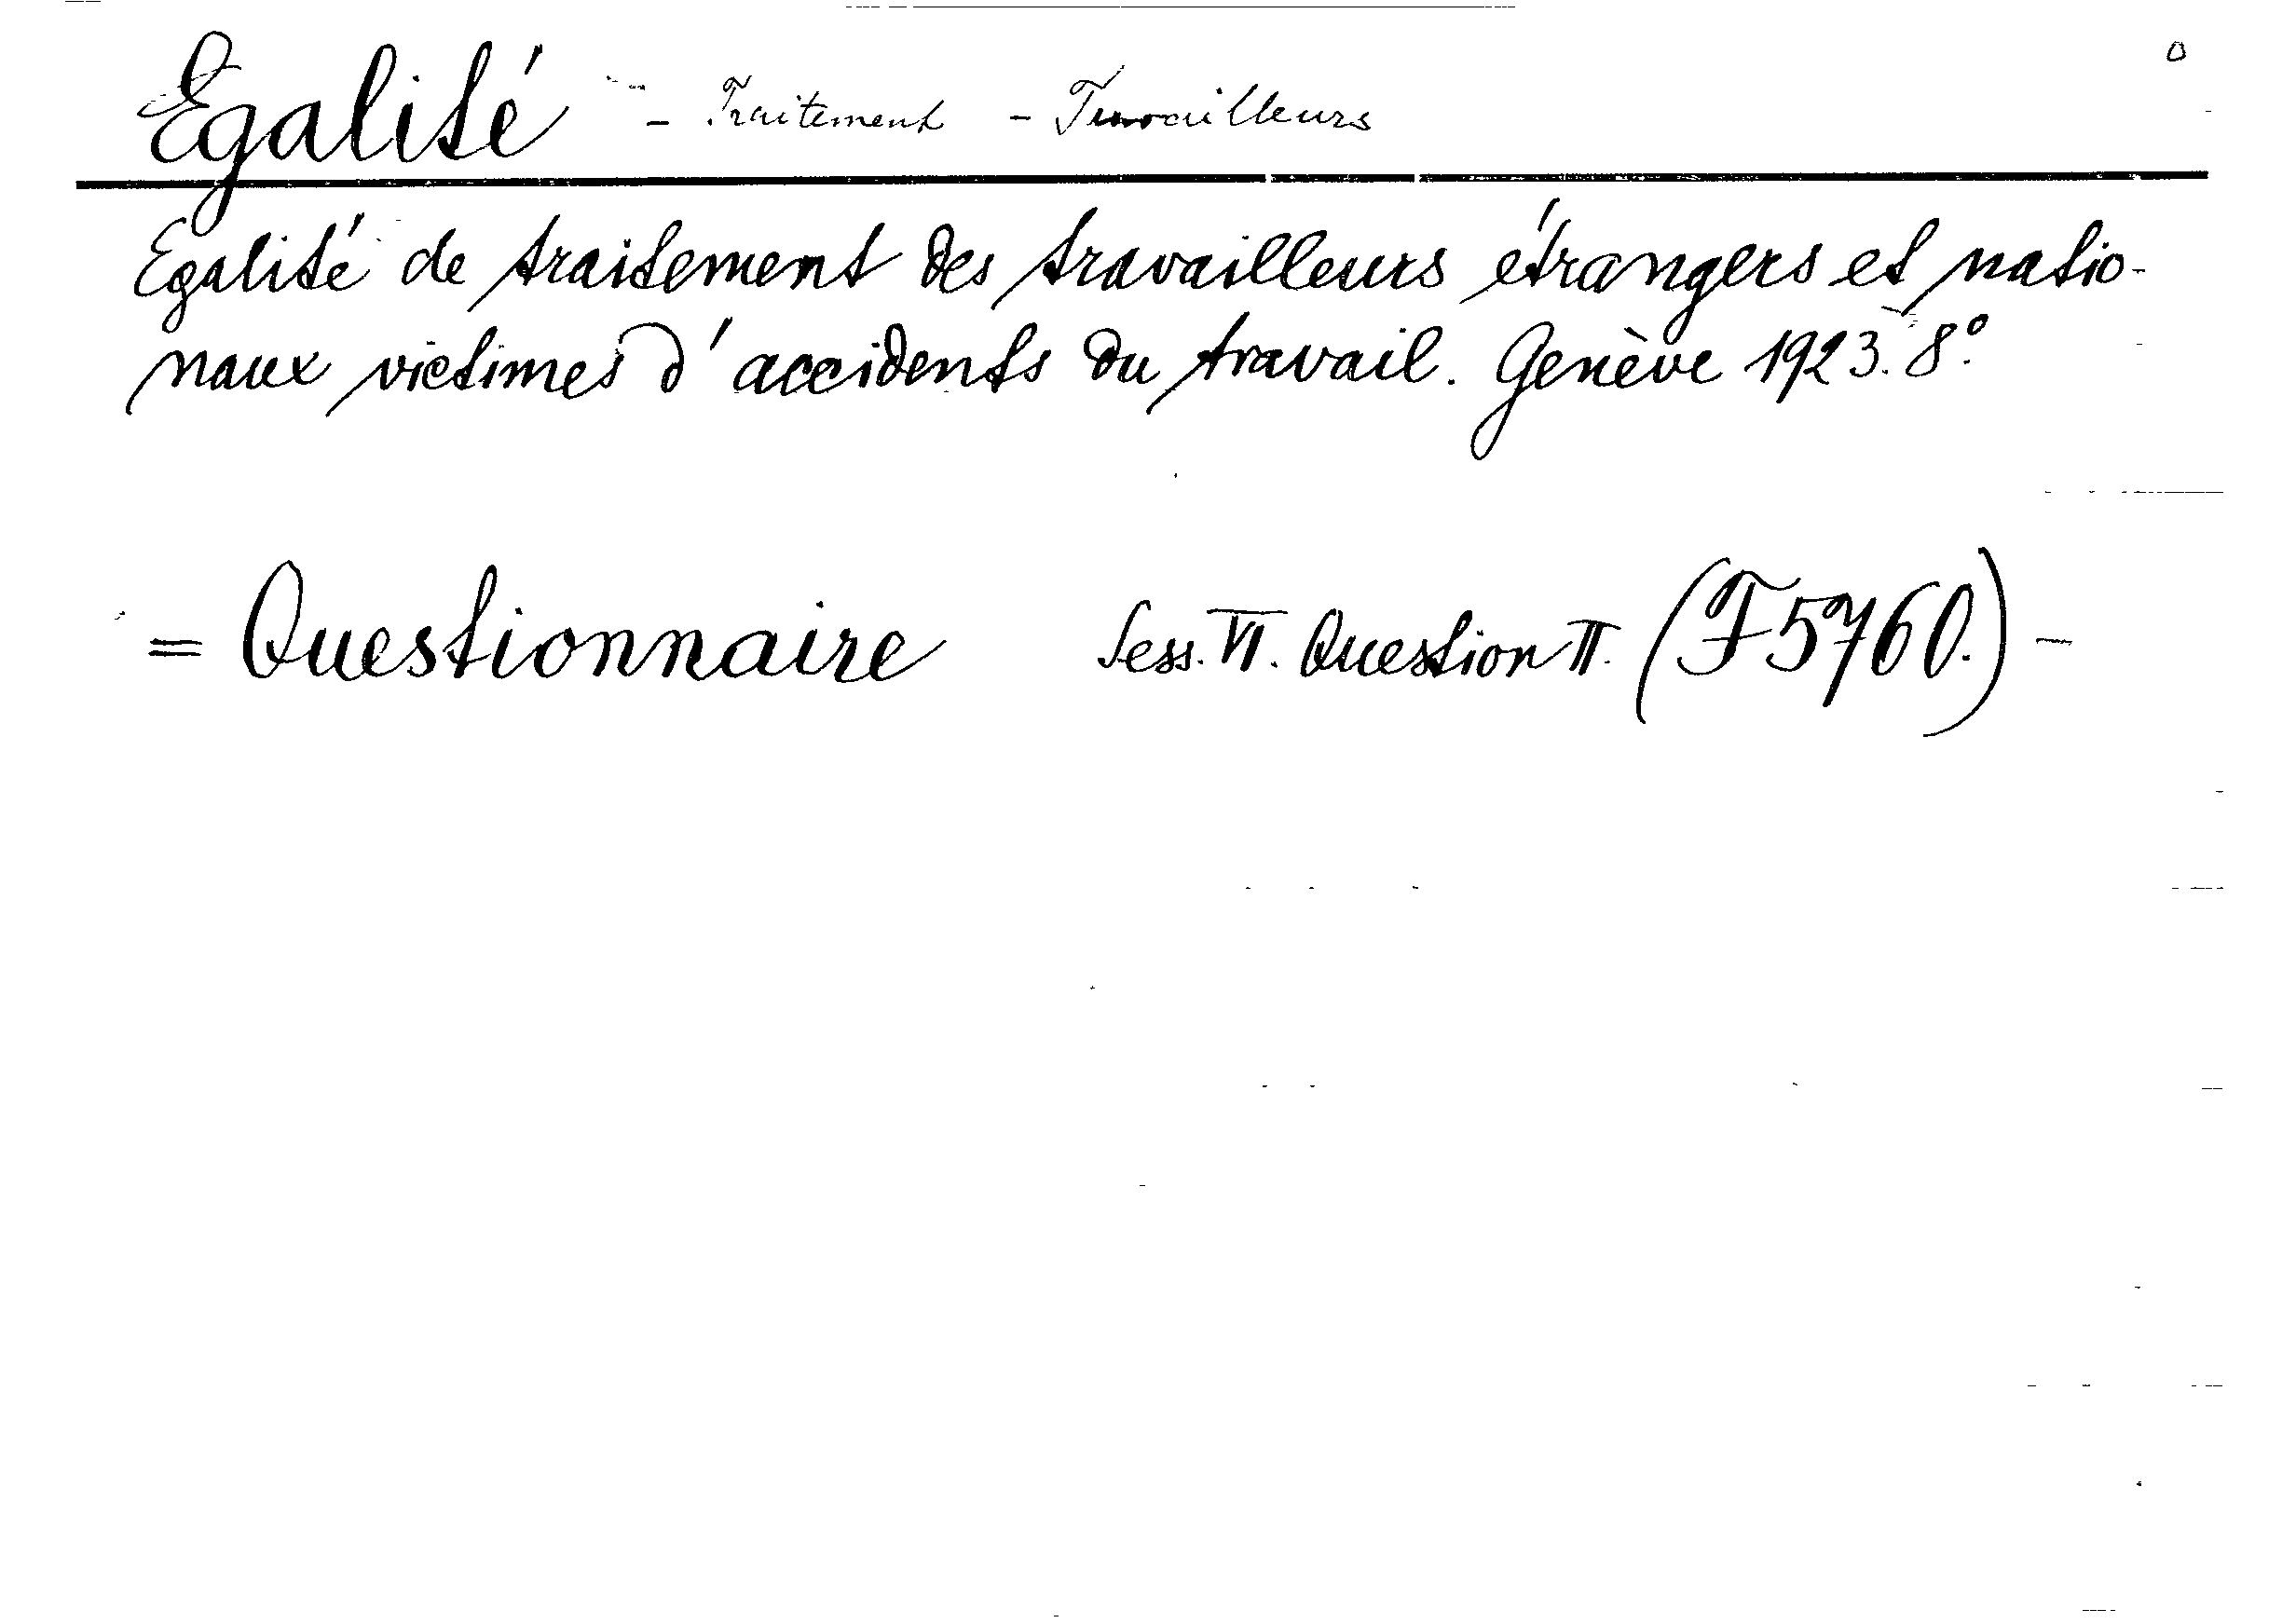 Egalité - Traitement - Travailleurs
Egalité de traitement des travailleurs étrangers et natio-
naux victimes d'accidents du travail. Genève 1923. 8°.
= Questionnaire Sess. VI. Question II. (F5760.) -